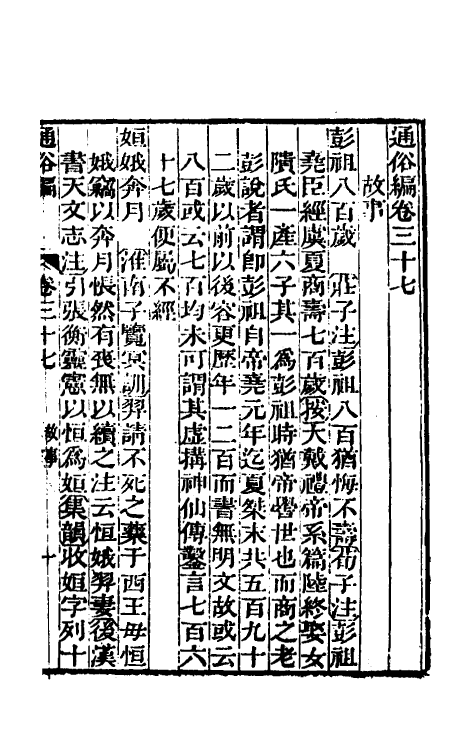 通俗編卷三十七
故事
彭祖八百歲　莊子注彭祖八百猶悔不壽荀子注彭祖
堯臣經虞夏商壽七百歲按大戴禮帝系篇陸終娶女
隤氏一產六子其一為彭祖時猶帝嚳世也而商之老
彭說者謂卽彭祖自帝堯元年迄夏桀末共五百九十
二歲以前以後容更歷年一二百而書無明文故或云
八百或云七百均未可謂其虛搆神仙傳鑿言七百六
十七歲便屬不經
姮娥奔月　淮南子覽冥訓羿請不死之藥于西王毋恒
娥竊以奔月悵然有喪無以續之注云恒娥羿妻後漢
書天文志注引張衡靈憲以恒為姮集韻收姮字列十
通俗編　卷三十七　故事　十